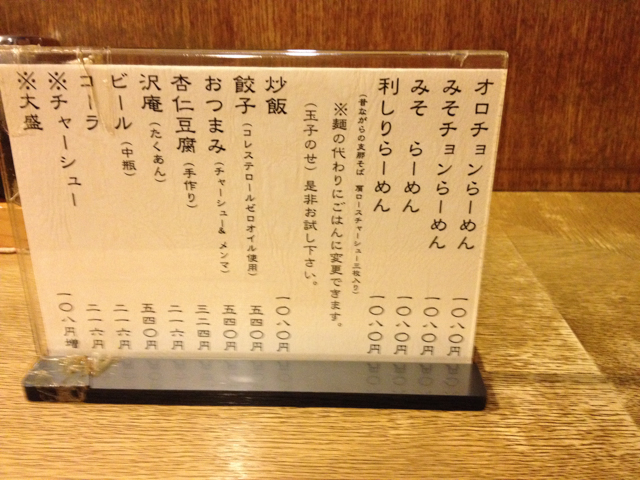 オロチョンらーめん 一〇八〇円
みそチョンらーめん 一〇八〇円
みそ らーめん 一〇八〇円
利しりらーめん 一〇八〇円
(昔ながらの支那そば 肩ロースチャーシュー三枚入り)
※麺の代わりにごはんに変更できます。
(玉子のせ) 是非お試し下さい。
炒飯 一〇八〇円
餃子(コレステロールゼロオイル使用) 五四〇円
おつまみ(チャーシュー& メンマ) 五四〇円
杏仁豆腐(手作り) 三二四円
沢庵(たくあん) 二一六円
ビール(中瓶) 五四〇円
コーラ 二一六円
※チャーシュー 二一六円
※大盛 一〇八円増